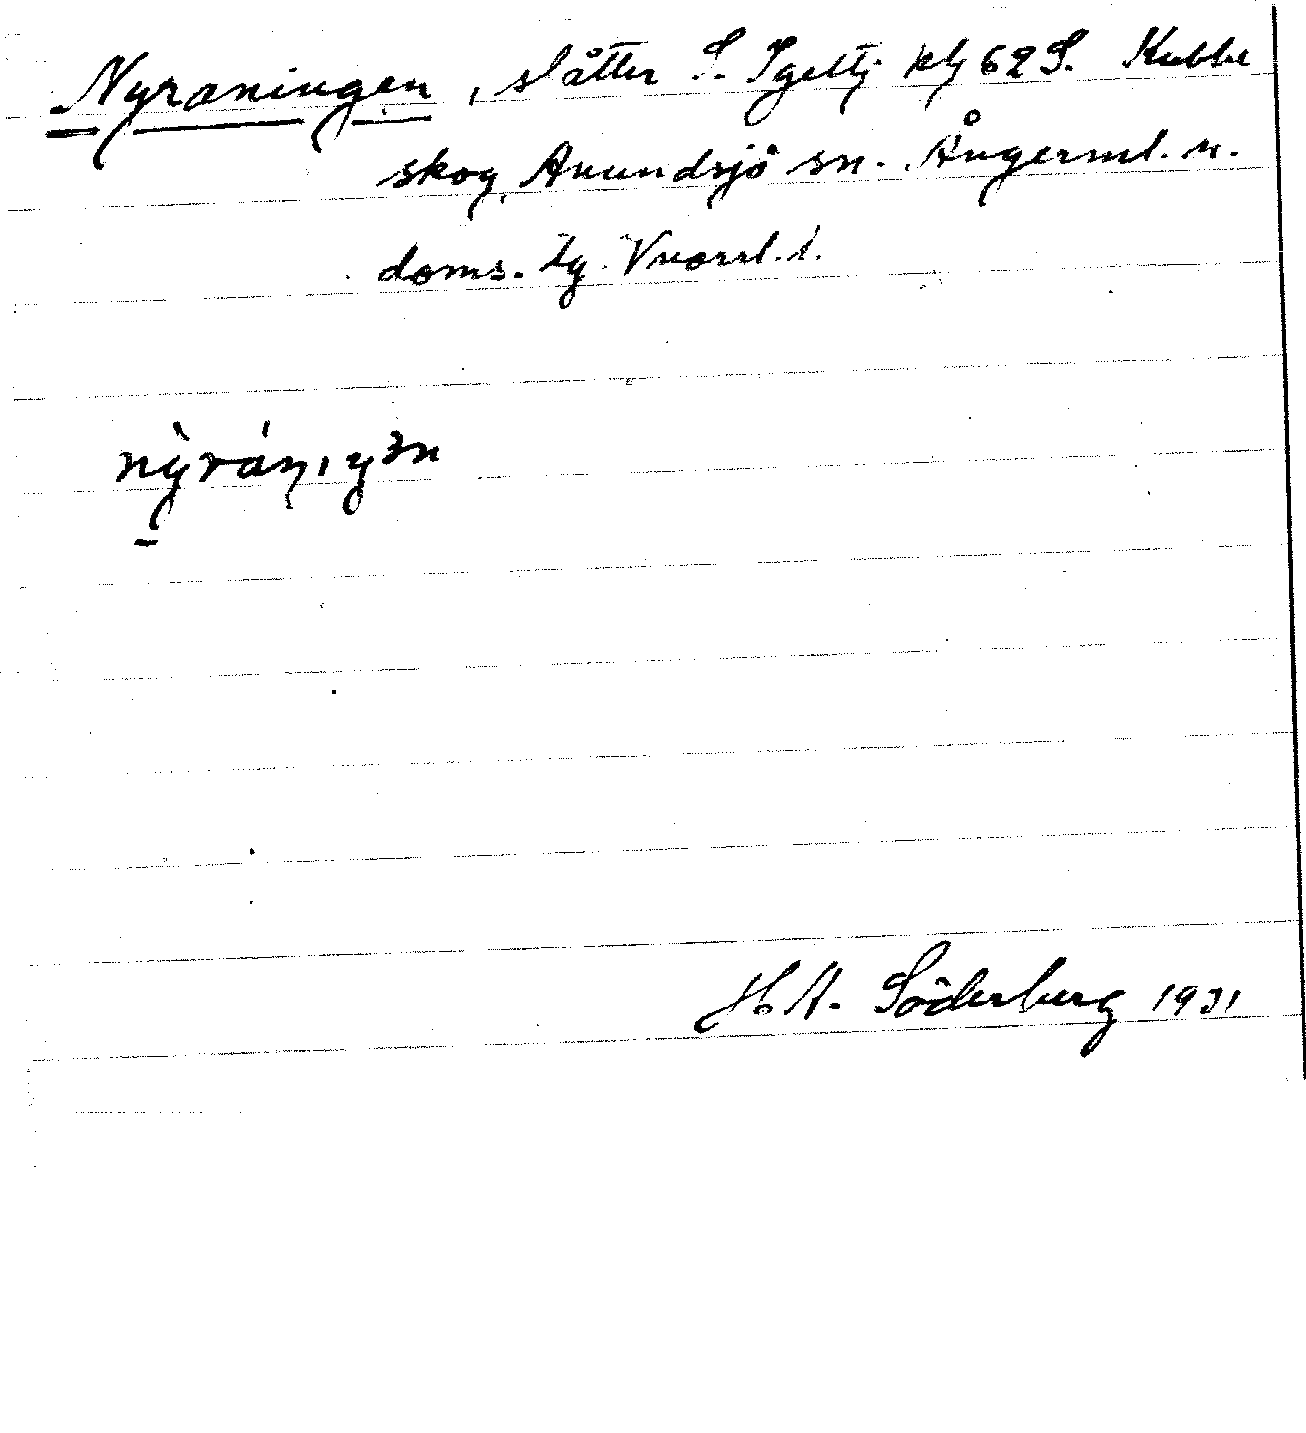 Nyraningen, slåtter S. Igeltj. kbl 62 S. Kubbe
skog, Anundsjö sn. Ångerml. n.
doms. tg. Vnorrl. l.
nỳráṇıŋən
H. A. Söderberg 1931